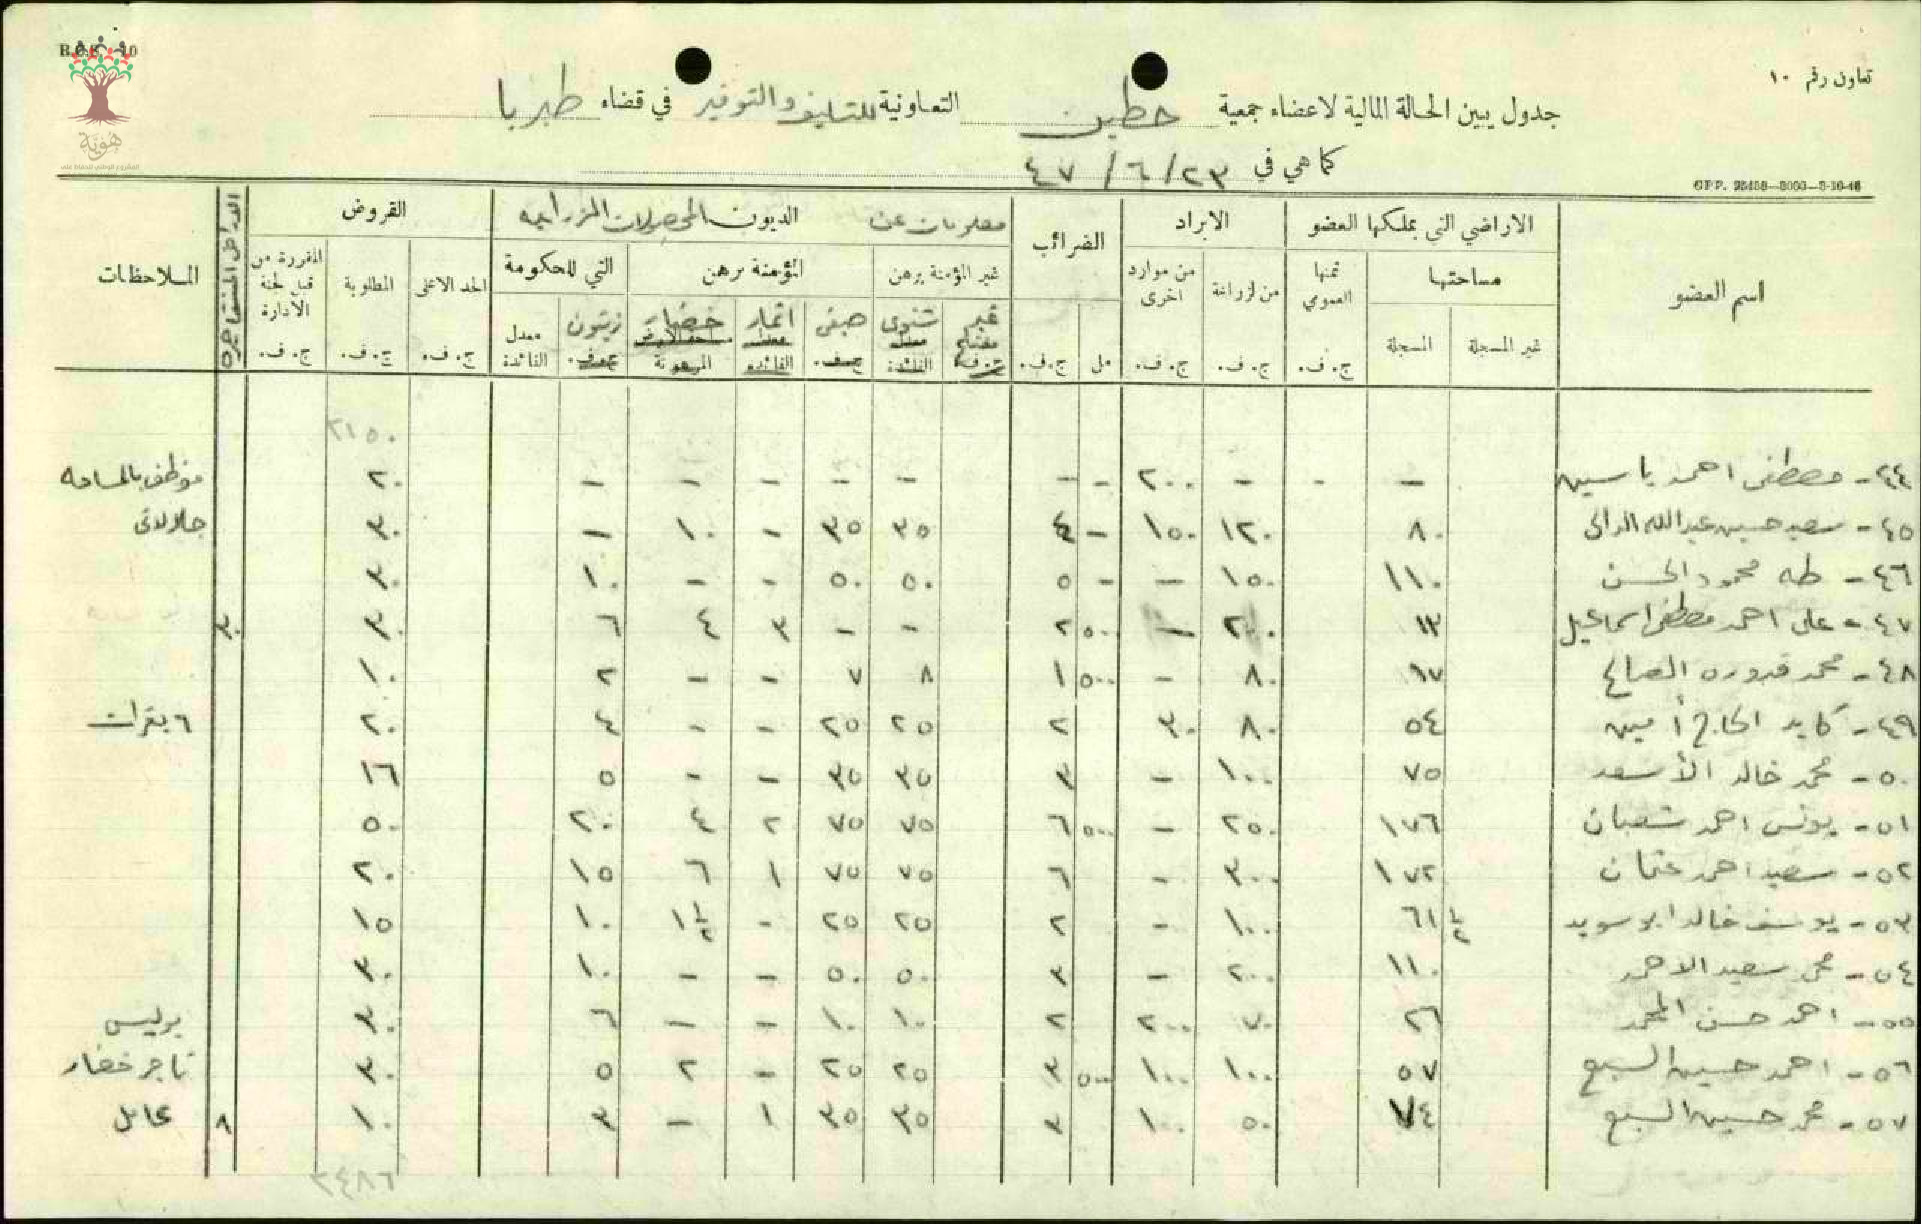 R.C.S. 10
تعاون رقم ١٠
هوية
جدول يبين الحالة المالية لاعضاء جمعية حطين التعاونية للتسليف والتوفير في قضاء طبريا
كما هي في ٢٣/٦/٤٧
GPP. 25458—3000—3-10-46
اسم العضو الاراضي التي يملكها العضو الايراد الضرائب معلومات عن الديون المحصولات الزراعيه القروض الاراضي المستأجره الملاحظات
مساحتها ثمنها العمومي من الزراعة من موارد اخرى غير المؤمنة برهن المؤمنة برهن التي للحكومة الحد الاعلى المطلوبة المقررة من قبل لجنة الأدارة
غير المسجلة المسجلة ج.ف. ج.ف. ج.ف. مل ج.ف. غير ج.ف. شتوى معدل الفائدة صيفى ج.ف. اثمار معدل الفائدة خضار مساحة الارض المرهونة زيتون ج.ف. معدل الفائدة ج.ف. ج.ف. ج.ف.
٢١٥٠
٤٤ - مصطفى احمد ياسين — - - ٢٠٠ - - - - - - - ٢٠ موظف بالمساحه
٤٥ - سعيد حسين عبدالله الدالى ٨٠ ١٢٠ ١٥٠ - ٤ ٣٥ ٣٥ - ١٠ - ٣٠
٤٦ - طه محمود الحسن ١١٠ ١٥٠ - - ٥ ٥٠ ٥٠ - - ١٠ ٣٠
٤٧ - على احمد مصطفى اسماعيل ١٣ ٢٠٠ - ٥٠ ٢ - - ٣ ٤ ٦ ٣٠
٤٨ - محمد قدوره الصالح ١٧ ٨٠ - ٥٠٠ ١ ٨ ٧ - - ٢ ١٠
٤٩ - كايد الحاج أمين ٥٤ ٨٠ ٣٠ ٢ ٢٥ ٢٥ - - ٤ ٢٠ ٦ بقرات
٥٠ - محمد خالد الأسعد ٧٥ ١٠٠ - ٣ ٣٥ ٣٥ - - ٥ ١٦
٥١ - يونس احمد شعبان ١٧٦ ٢٥٠ - ٥٠٠ ٦ ٧٥ ٧٥ ٢ ٤ ٢٠ ٥٠
٥٢ - سعيد احمد عثمان ١٧٢ ٣٠٠ - ٦ ٧٥ ٧٥ ١ ٦ ١٥ ٢٠
٥٣ - يوسف خالد ابو سويد ½ ٦١ ١٠٠ - ٢ ٢٥ ٢٥ - ١½ ١٠ ١٥
٥٤ - محمد سعيد الاحمد ١١٠ ٢٠٠ - ٣ ٥٠ ٥٠ - - ١٠ ٣٠
٥٥ - احمد حسن المحمد ٢٦ ٧٠ ٢٠٠ ٢ ١٠ ١٠ - - ٦ ٣٠ بوليس
٥٦ - احمد حسين السبع ٥٧ ١٠٠ ١٠٠ ٥٠٠ ٣ ٢٥ ٢٥ - ٢ ٥ ٣٠ تاجر خضار
٥٧ - محمد حسين السبع ٧٤ ٥٠ ١٠٠ ٣ ٣٥ ٣٥ ١ - ٣ ١٠ ٨ عامل
٢٤٨٦